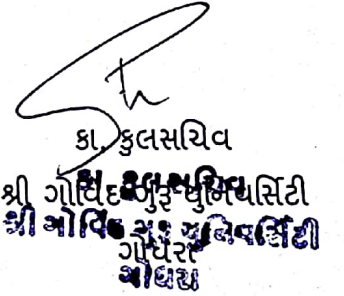 કા. કુલસચિવ
કા. કુલસચિવ
શ્રી ગોવિંદ ગુરૂ યુનિવર્સિટી
શ્રી ગોવિંદ ગુરૂ યુનિવર્સિટી
ગોધરા
ગોધરા